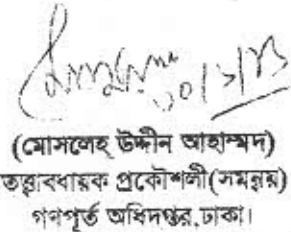 ১০/১/১৩
(মোসলেহ্ উদ্দীন আহাম্মদ)
তত্ত্বাবধায়ক প্রকৌশলী(সমন্বয়)
গণপূর্ত অধিদপ্তর,ঢাকা।